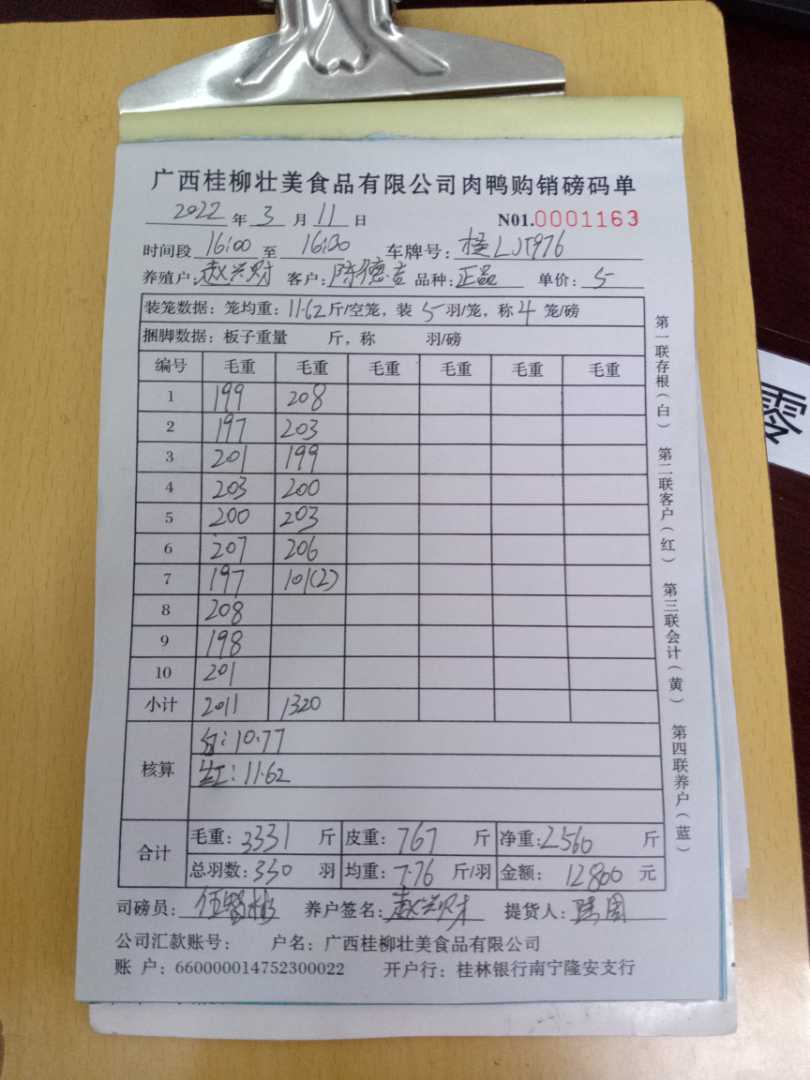 广西桂柳壮美食品有限公司肉鸭购销磅码单
2022 年 3 月 11 日 N01.0001163
时间段 16:00 至 16:30 车牌号: 桂LJT976
养殖户: 赵兴财 客户: 陈德吉 品种: 正品 单价: 5
装笼数据: 笼均重: 11.62 斤/空笼, 装 5 羽/笼, 称 4 笼/磅
捆脚数据: 板子重量 斤, 称 羽/磅
编号 毛重 毛重 毛重 毛重 毛重 毛重
1 199 208
2 197 203
3 201 199
4 203 200
5 200 203
6 207 206
7 197 101(2)
8 208
9 198
10 201
小计 2011 1320
核算
白: 10.77
红: 11.62
合计
毛重: 3331 斤 皮重: 767 斤 净重: 2560 斤
总羽数: 330 羽 均重: 7.76 斤/羽 金额: 12800 元
司磅员: 养户签名: 赵兴财 提货人:
公司汇款账号: 户名: 广西桂柳壮美食品有限公司
账 户: 660000014752300022 开户行: 桂林银行南宁隆安支行
第一联存根(白) 第二联客户(红) 第三联会计(黄) 第四联养户(蓝)
零